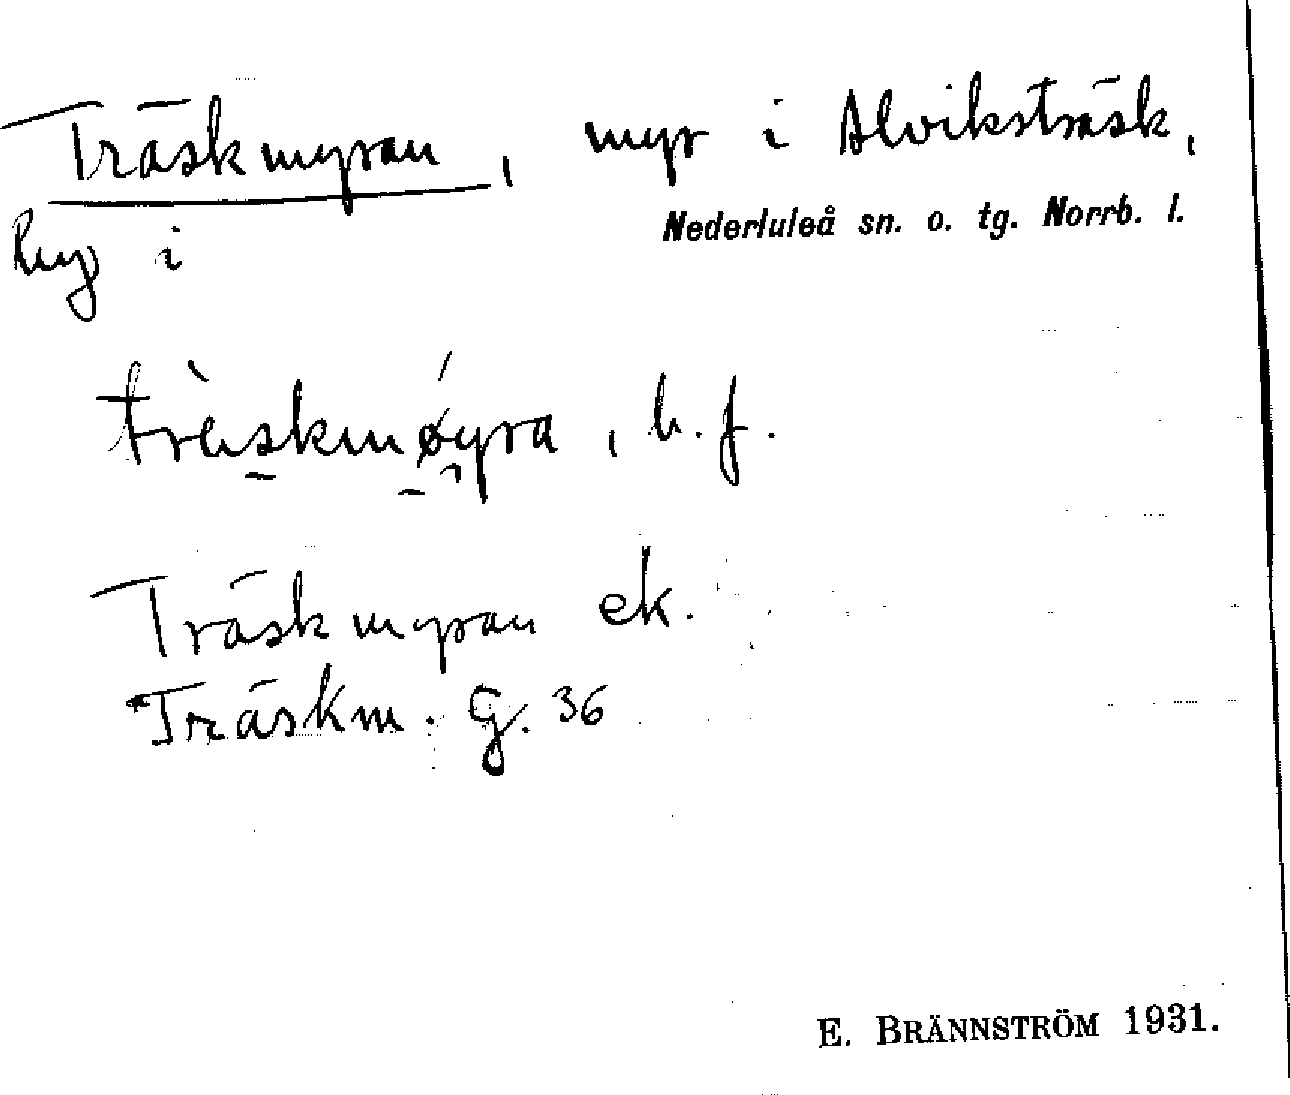 Träskmyran, myr i Alviksträsk,
Nederluleå sn. o. tg. Norrb. l.
i
träskmøyra, b.f.
Träskmyran ek.
Träskm. G. 36
E. BRÄNNSTRÖM 1931.